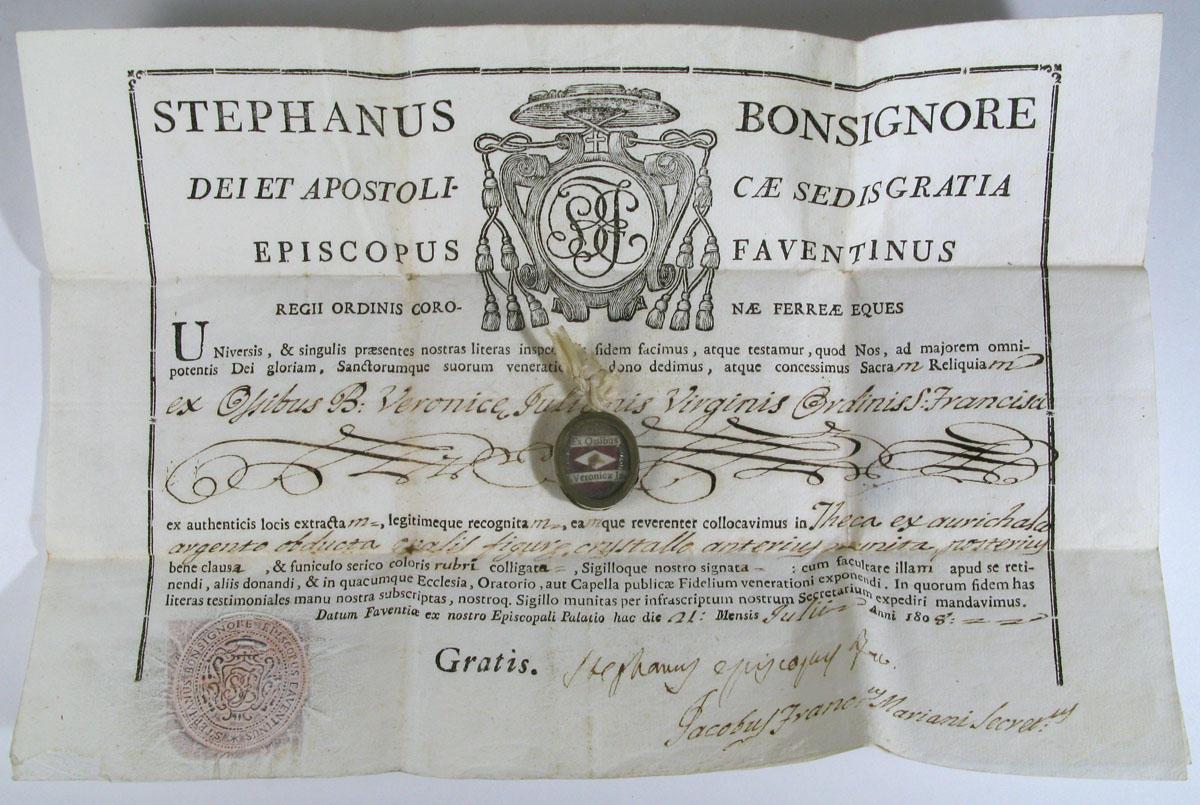 STEPHANUS BONSIGNORE
DEI ET APOSTOLI- CÆ SEDIS GRATIA
EPISCOPUS FAVENTINUS
REGII ORDINIS CORO- NÆ FERREÆ EQUES
UNiversis, & singulis præsentes nostras literas inspe fidem facimus, atque testamur, quod Nos, ad majorem omni-
potentis Dei gloriam, Sanctorumque suorum veneratio dono dedimus, atque concessimus Sacram Reliquiam
ex Ossibus B: Veronicę Julianis Virginis Ordinis S. Francisci
Ex Ossibus
Veronicæ Ju
ex authenticis locis extractam=, legitimeque recognitam=, eamque reverenter collocavimus in Theca ex aurichalco
argento obducta ovalis figurę, crystallo anterius munita, posterius
bene clausa, & funiculo serico coloris rubri colligata=, Sigilloque nostro signata=: cum facultate illam apud se reti-
nendi, aliis donandi, & in quacumque Ecclesia, Oratorio, aut Capella publicæ Fidelium venerationi exponendi. In quorum fidem has
literas testimoniales manu nostra subscriptas, nostroq. Sigillo munitas per infrascriptum nostrum Secretarium expediri mandavimus.
Datum Faventiæ ex nostro Episcopali Palatio hac die 21: Mensis Julii= Anni 1808:= = =
Gratis. Stephanus episcopus
Jacobus Francus Mariani Secretus
STEPHANUS BONSIGNORE EPISCOPUS FAVENTINUS